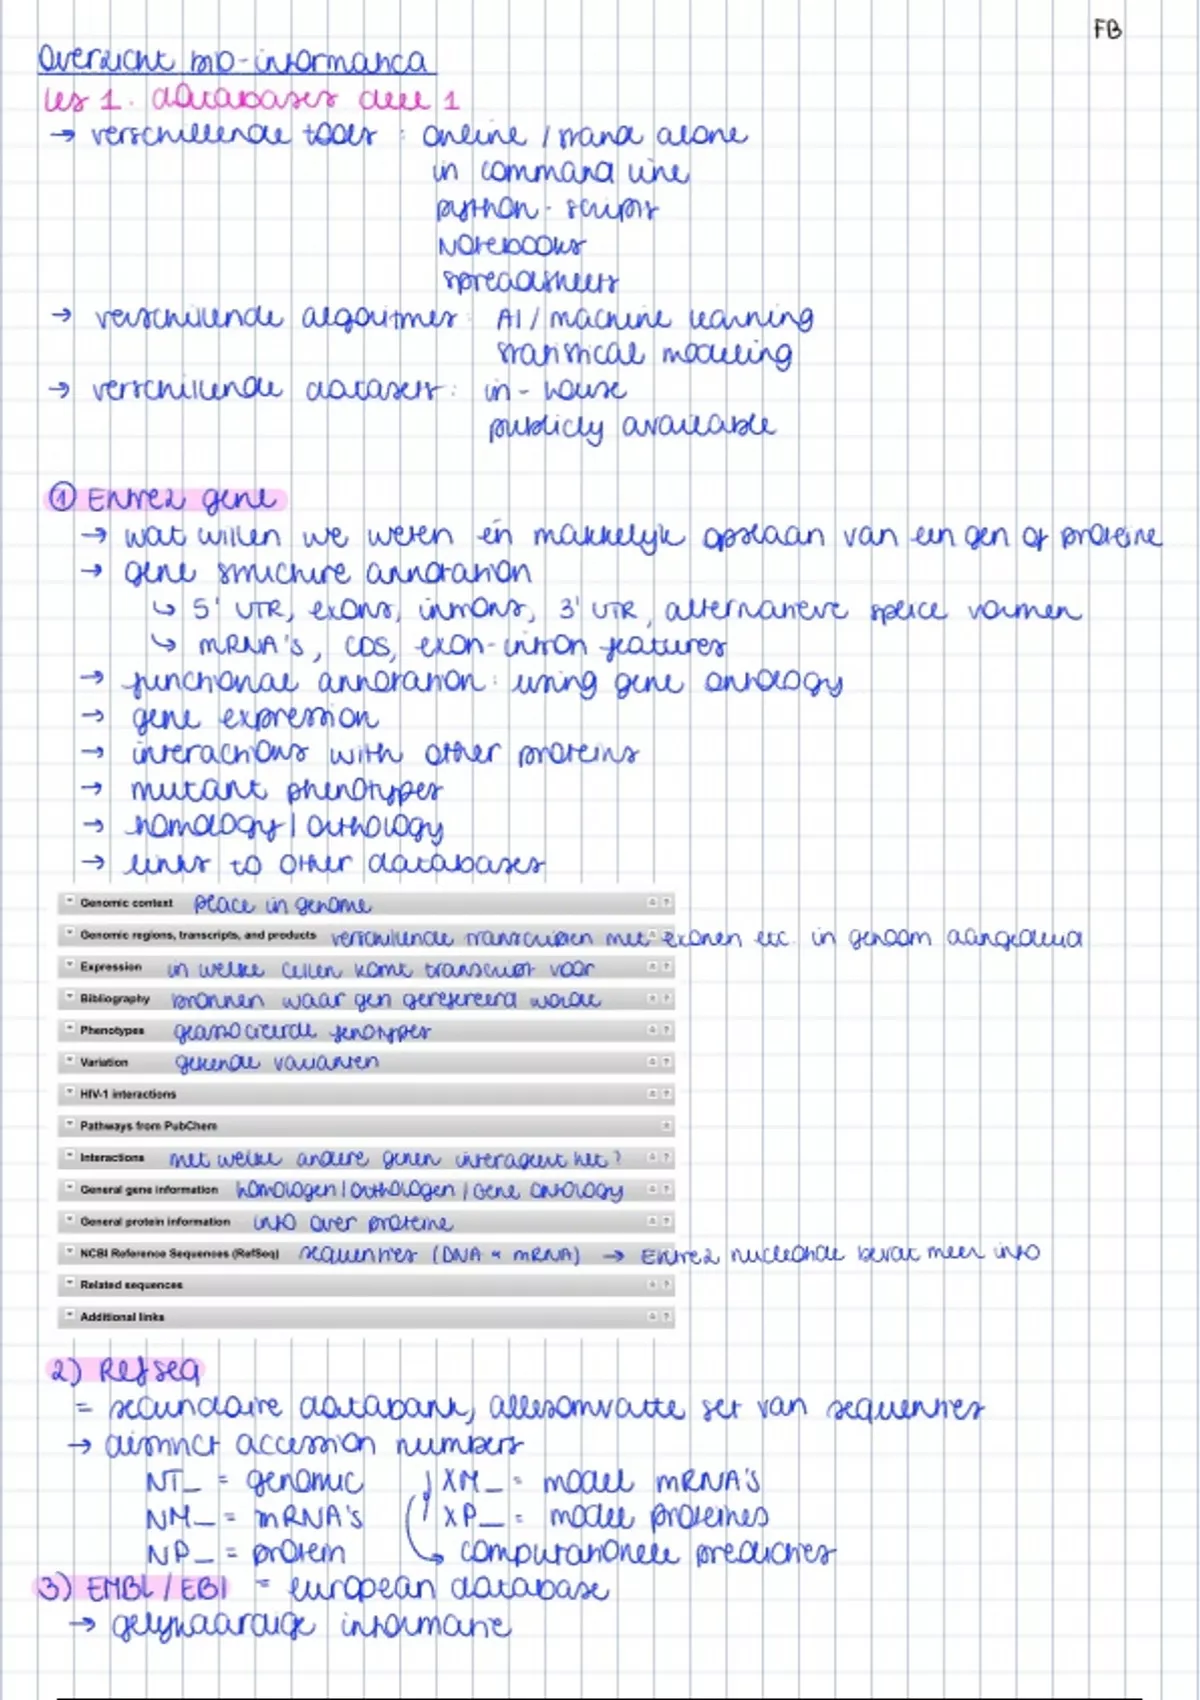 FB
Overzicht bio-informatica
Les 1. databases deel 1
→ verschillende tools : online / stand alone
in command line
python - scripts
Notebooks
spreadsheets
→ verschillende algoritmes : AI / machine learning
statistical modelling
→ verschillende datasets : in-house
publicly available
① Entrez gene
→ wat willen we weten én makkelijk opslaan van een gen of proteïne
→ gene structure annotation
↳ 5' UTR, exons, introns, 3' UTR, alternatieve splice vormen
↳ mRNA's, CDS, exon-intron features
→ functional annotation : using gene ontology
→ gene expression
→ interactions with other proteins
→ mutant phenotypes
→ homology / orthology
→ links to other databases
Genomic context place in genome
Genomic regions, transcripts, and products verschillende transcripten met exonen etc. in genoom aangeduid
Expression in welke cellen komt transcript voor
Bibliography bronnen waar gen gerefereerd wordt
Phenotypes geassocieerde fenotypes
Variation gekende varianten
HIV-1 interactions
Pathways from PubChem
Interactions met welke andere genen interageert het?
General gene information homologen / orthologen / Gene ontology
General protein information info over proteïne
NCBI Reference Sequences (RefSeq) sequenties (DNA & mRNA) → Entrez nucleotide bevat meer info
Related sequences
Additional links
2) RefSeq
= secundaire databank, allesomvatte set van sequenties
→ distinct accession numbers
NT_ = genomic XM_ = model mRNA's
NM_ = mRNA's XP_ = model proteines
NP_ = protein ↳ computationele predicties
3) EMBL / EBI = european database
→ gelijkaardige informatie